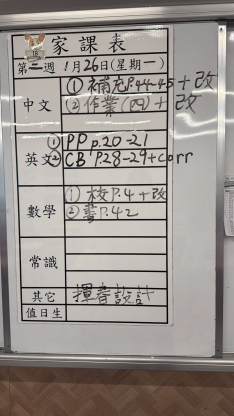 家課表
第二週 1月26日(星期一)
中文
① 補充P.44-45 + 改
② 作業(四) + 改
英文
① PP p.20-21
② CB P.28-29+corr
數學
① 校P.4 + 改
② 書P.42
常識
其它
揮春設計
值日生